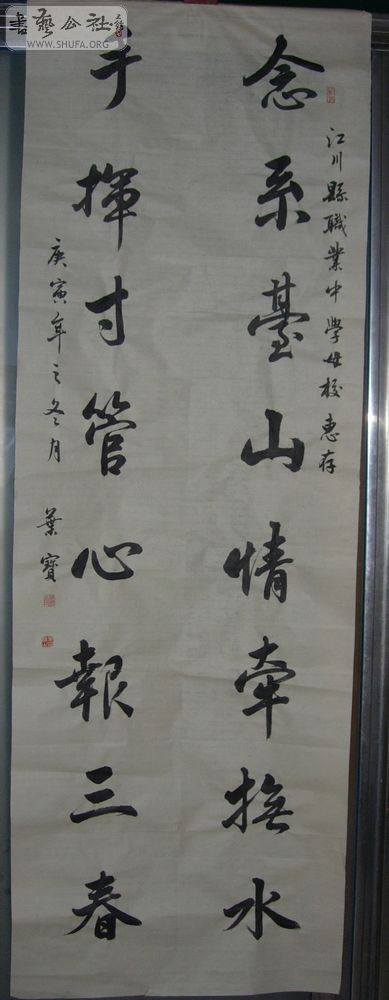 江川縣職業中學母校惠存
念系臺山情牽撫水
手揮寸管心報三春
庚寅年之冬月 葉寶
書藝公社
WWW.SHUFA.ORG